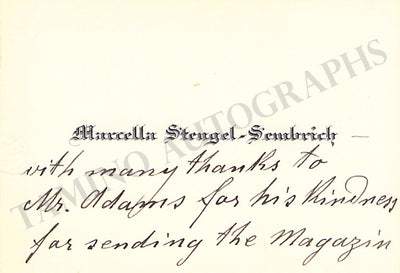 Marcella Stengel-Sembrich
with many thanks to
Mr. Adams for his kindness
for sending the Magazin
TAMINO AUTOGRAPHS